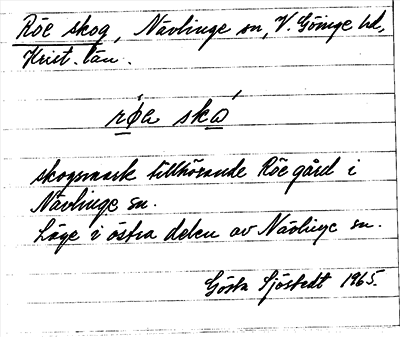 Röe skog, Nävlinge sn, V. Göinge hd,
Krist. län.
skogsmark tillhörande Röe gård i
Nävlinge sn.
Läge i östra delen av Nävlinge sn.
Gösta Sjöstedt 1965.